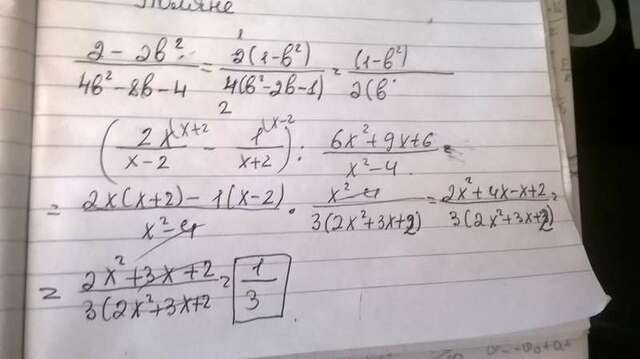 \frac{2-2b^2}{4b^2-8b-4} = \frac{2(1-b^2)}{4(b^2-2b-1)} = \frac{(1-b^2)}{2(b}
2
\left(\frac{2x^{(x+2}}{x-2} - \frac{1^{(x-2}}{x+2}\right) : \frac{6x^2+9x+6}{x^2-4} =
= \frac{2x(x+2)-1(x-2)}{x^2-4} \cdot \frac{x^2-4}{3(2x^2+3x+2)} = \frac{2x^2+4x-x+2}{3(2x^2+3x+2)} =
= \frac{2x^2+3x+2}{3(2x^2+3x+2} = \frac{1}{3}